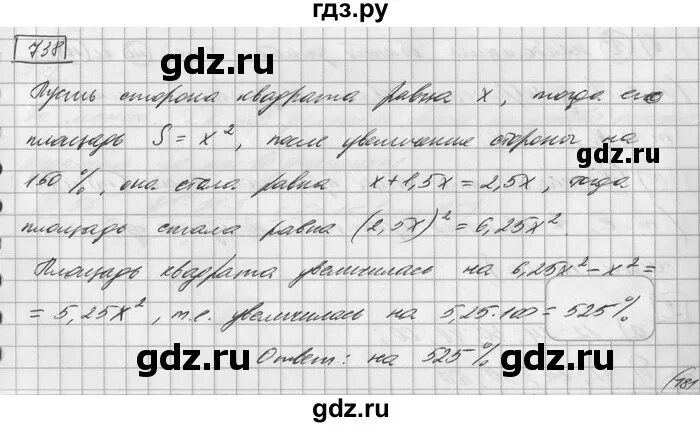 гдз.ру
738
gdz.ru gdz.ru
Пусть сторона квадрата равна x, тогда его
площадь S = x², после увеличение стороны на
gdz.ru
150%, она стала равна x+1,5x = 2,5x, тогда
площадь стала равна (2,5x)² = 6,25x².
gdz.ru
Площадь квадрата увеличилась на 6,25x² - x² =
= 5,25x², т.е. увеличилась на 5,25·100 = 525%
gdz.ru gdz.ru
Ответ: на 525%
181
гдз.ру